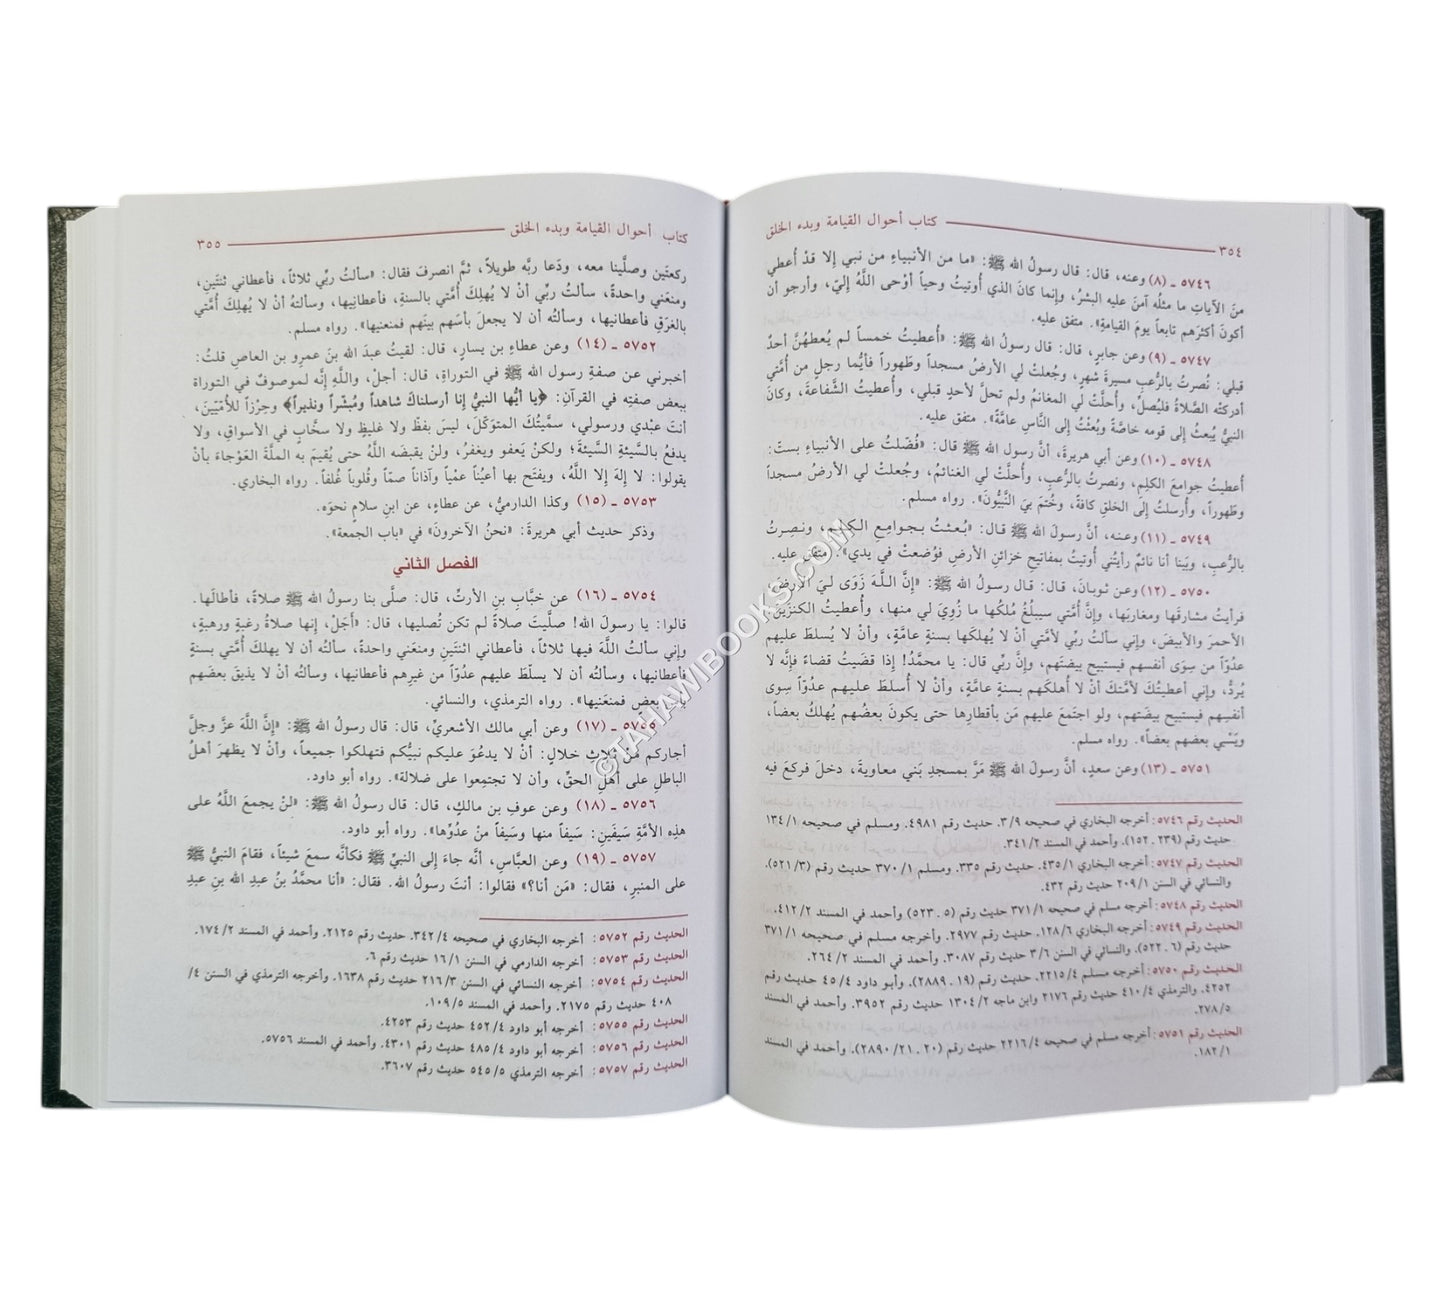 ٣٥٤ كتاب أحوال القيامة وبدء الخلق
٥٧٤٦ ـ (٨) وعنه، قال: قال رسولُ الله ﷺ: «ما من الأنبياءِ من نبي إلا قدْ أُعطي
منَ الآياتِ ما مثلُه آمنَ عليه البشرُ، وإنما كانَ الذي أُوتيتُ وحياً أوْحى اللَّهُ إليّ، وأرجو أن
أكونَ أكثرَهم تابعاً يومَ القيامةِ». متفق عليه.
٥٧٤٧ ـ (٩) وعن جابرٍ، قال: قال رسولُ الله ﷺ: «أُعطيتُ خمساً لم يُعطهُنَّ أحدٌ
قبلي: نُصرتُ بالرُّعبِ مسيرةَ شهرٍ، وجُعلتْ لي الأرضُ مسجداً وطَهوراً فأيُّما رجلٍ من أُمَّتي
أدركتْه الصَّلاةُ فليُصلِّ، وأُحلَّتْ لي المغانمُ ولم تحلَّ لأحدٍ قبلي، وأُعطيتُ الشَّفاعةَ، وكانَ
النبيُّ يُبعثُ إلى قومه خاصَّةً وبُعثْتُ إلى النَّاسِ عامَّةً». متفق عليه.
٥٧٤٨ ـ (١٠) وعن أبي هريرةَ، أنَّ رسول الله ﷺ قال: «فُضّلتُ على الأنبياءِ بستّ:
أُعطيتُ جوامعَ الكلِمِ، ونصرتُ بالرُّعبِ، وأُحلَّتْ لي الغنائمُ، وجُعلتْ لي الأرضُ مسجداً
وطَهوراً، وأُرسلتُ إلى الخلقِ كافةً، وخُتمَ بيَ النَّبيُّونَ». رواه مسلم.
٥٧٤٩ ـ (١١) وعنه، أنَّ رسولَ الله ﷺ قال: «بُعثتُ بجوامعِ الكلِمِ، ونصِرتُ
بالرُّعبِ، وبَينا أنا نائمٌ رأيتُني أُوتيتُ بمفاتيحِ خزائنِ الأرضِ فوُضعتْ في يدي». متفق عليه.
٥٧٥٠ ـ (١٢) وعن ثوبانَ، قال: قال رسولُ الله ﷺ: «إنَّ اللَّهَ زَوَى ليَ الأرضَ،
فرأيتُ مشارقَها ومغاربَها، وإنَّ أُمَّتي سيبلُغُ مُلكُها ما زُوِيَ لي منها، وأُعطيتُ الكنزَينِ:
الأحمرَ والأبيضَ، وإني سألتُ ربِّي لأمَّتي أنْ لا يُهلكَها بسنةٍ عامَّةٍ، وأنْ لا يُسلطَ عليهم
عدُوّاً من سِوى أنفسهم فيستبيح بيضتَهم، وإنَّ ربِّي قال: يا محمَّدُ! إذا قضَيتُ قضاءً فإنَّه لا
يُردُّ، وإني أعطيتُكَ لأمَّتكَ أنْ لا أُهلكَهم بسنةٍ عامَّةٍ، وأنْ لا أُسلطَ عليهم عدُوّاً سِوى
أنفسِهم فيستبيح بيضَتهم، ولو اجتمَعَ عليهم مَن بأقطارِها حتى يكونَ بعضُهم يُهلكُ بعضاً،
ويَسْبي بعضهم بعضاً». رواه مسلم.
٥٧٥١ ـ (١٣) وعن سعدٍ، أنَّ رسولَ الله ﷺ مَرَّ بمسجدِ بَني معاويةَ، دخلَ فركعَ فيه
الحديث رقم ٥٧٤٦: أخرجه البخاري في صحيحه ٩/ ٣. حديث رقم ٤٩٨١. ومسلم في صحيحه ١/ ١٣٤
حديث رقم (٢٣٩. ١٥٢). وأحمد في المسند ٢/ ٣٤١.
الحديث رقم ٥٧٤٧: أخرجه البخاري ١/ ٤٣٥. حديث رقم ٣٣٥. ومسلم ١/ ٣٧٠ حديث رقم (٣/ ٥٢١).
والنسائي في السنن ١/ ٢٠٩ حديث رقم ٤٣٢.
الحديث رقم ٥٧٤٨: أخرجه مسلم في صحيحه ١/ ٣٧١ حديث رقم (٥. ٥٢٣) وأحمد في المسند ٢/ ٤١٢.
الحديث رقم ٥٧٤٩: أخرجه البخاري ٦/ ١٢٨. حديث رقم ٢٩٧٧. وأخرجه مسلم في صحيحه ١/ ٣٧١
حديث رقم (٦. ٥٢٢). والنسائي في السنن ٦/ ٣ حديث رقم ٣٠٨٧. وأحمد في المسند ٢/ ٢٦٤.
الحديث رقم ٥٧٥٠: أخرجه مسلم ٤/ ٢٢١٥. حديث رقم (١٩. ٢٨٨٩). وأبو داود ٤/ ٤٥ حديث رقم
٤٢٥٢. والترمذي ٤/ ٤١٠ حديث رقم ٢١٧٦ وابن ماجه ٢/ ١٣٠٤ حديث رقم ٣٩٥٢. وأحمد في المسند
٥/ ٢٧٨.
الحديث رقم ٥٧٥١: أخرجه مسلم في صحيحه ٤/ ٢٢١٦ حديث رقم (٢٠. ٢١/ ٢٨٩٠). وأحمد في المسند
١/ ١٨٢.
كتاب أحوال القيامة وبدء الخلق ٣٥٥
ركعتَين وصلَّينا معه، ودَعا ربَّه طويلاً، ثمَّ انصرفَ فقال: «سألتُ ربِّي ثلاثاً، فأعطاني ثنتَينِ،
ومنعَني واحدةً، سألتُ ربِّي أنْ لا يُهلِكَ أُمَّتي بالسنةِ، فأعطانِيها، وسألتهُ أنْ لا يُهلِكَ أُمَّتي
بالغَرَقِ فأعطانيها، وسألتُه أن لا يجعلَ بأسَهم بينَهم فمنعنيها». رواه مسلم.
٥٧٥٢ ـ (١٤) وعن عطاءِ بن يسارٍ، قال: لقيتُ عبدَ الله بنَ عمرِو بن العاصِ قلتُ:
أخبرني عن صفةِ رسول الله ﷺ في التوراةِ، قال: أجلْ، واللَّهِ إنَّه لموصوفٌ في التوراة
ببعض صفتِه في القرآنِ: ﴿يا أيُّها النبيُّ إنا أرسلناكَ شاهداً ومُبشّراً ونذيراً﴾ وحِرْزاً للأُمّيّينَ،
أنتَ عبْدي ورسولي، سمَّيتُك المتوَكلَ، ليسَ بفظّ ولا غليظٍ ولا سخَّابٍ في الأسواقِ، ولا
يدفعُ بالسَّيئةِ السَّيئةَ؛ ولكنْ يَعفو ويغفرُ، ولنْ يقبضَه اللَّهُ حتى يُقيمَ به الملَّةَ العَوْجاءَ بأنْ
يقولوا: لا إلهَ إلا اللَّهُ، ويفتَح بها أعيُناً عمْياً وآذاناً صمّاً وقُلوباً غُلفاً. رواه البخاري.
٥٧٥٣ ـ (١٥) وكذا الدارميُّ، عن عطاءٍ، عن ابنِ سلامٍ نحوَه.
وذكر حديث أبي هريرةَ: «نحنُ الآخرونَ» في «باب الجمعة».
الفصل الثاني
٥٧٥٤ ـ (١٦) عن خبَّابِ بن الأرتِّ، قال: صلَّى بنا رسولُ الله ﷺ صلاةً، فأطالَها.
قالوا: يا رسولَ الله! صلَّيتَ صلاةً لم تكن تُصليها، قال: «أجَلْ، إنها صلاةُ رغبةٍ ورهبةٍ،
وإني سألتُ اللَّهَ فيها ثلاثاً، فأعطاني اثنتَينِ ومنعَني واحدةً، سألتُه أن لا يهلكَ أُمَّتي بسنةٍ
فأعطانيها، وسألتُه أن لا يسلّطَ عليهم عدُوّاً من غيرِهم فأعطانيها، وسألتهُ أن لا يذيقَ بعضَهم
بأسَ بعضٍ فمنعَنيها». رواه الترمذي، والنسائي.
٥٧٥٥ ـ (١٧) وعن أبي مالك الأشعريِّ، قال: قال رسولُ الله ﷺ: «إنَّ اللَّهَ عزَّ وجلَّ
أجاركم منْ ثلاثِ خلالٍ: أنْ لا يدعُوَ عليكم نبيُّكم فتهلكوا جميعاً، وأنْ لا يظهرَ أهلُ
الباطلِ على أهْلِ الحقِّ، وأن لا تجتمِعوا على ضلالة». رواه أبو داود.
٥٧٥٦ ـ (١٨) وعن عوفِ بن مالكٍ، قال: قال رسولُ الله ﷺ: «لنْ يجمعَ اللَّهُ على
هذِه الأمَّةِ سَيفَينِ: سَيفاً منها وسَيفاً منْ عدُوِّها». رواه أبو داود.
٥٧٥٧ ـ (١٩) وعن العبَّاسِ، أنَّه جاءَ إلى النبيِّ ﷺ فكأنَّه سمعَ شيئاً، فقامَ النبيُّ ﷺ
على المنبرِ، فقال: «مَن أنا؟» فقالوا: أنتَ رسولُ الله. فقال: «أنا محمَّدُ بنُ عبدِ الله بنِ عبدِ
الحديث رقم ٥٧٥٢: أخرجه البخاري في صحيحه ٤/ ٣٤٢. حديث رقم ٢١٢٥. وأحمد في المسند ٢/ ١٧٤.
الحديث رقم ٥٧٥٣: أخرجه الدارمي في السنن ١/ ١٦ حديث رقم ٦.
الحديث رقم ٥٧٥٤: أخرجه النسائي في السنن ٣/ ٢١٦ حديث رقم ١٦٣٨. وأخرجه الترمذي في السنن ٤/
٤٠٨ حديث رقم ٢١٧٥. وأحمد في المسند ٥/ ١٠٩.
الحديث رقم ٥٧٥٥: أخرجه أبو داود ٤/ ٤٥٢ حديث رقم ٤٢٥٣.
الحديث رقم ٥٧٥٦: أخرجه أبو داود ٤/ ٤٨٥ حديث رقم ٤٣٠١. وأحمد في المسند ٥٧٥٦.
الحديث رقم ٥٧٥٧: أخرجه الترمذي ٥/ ٥٤٥ حديث رقم ٣٦٠٧.
©TAHAWIBOOKS.COM